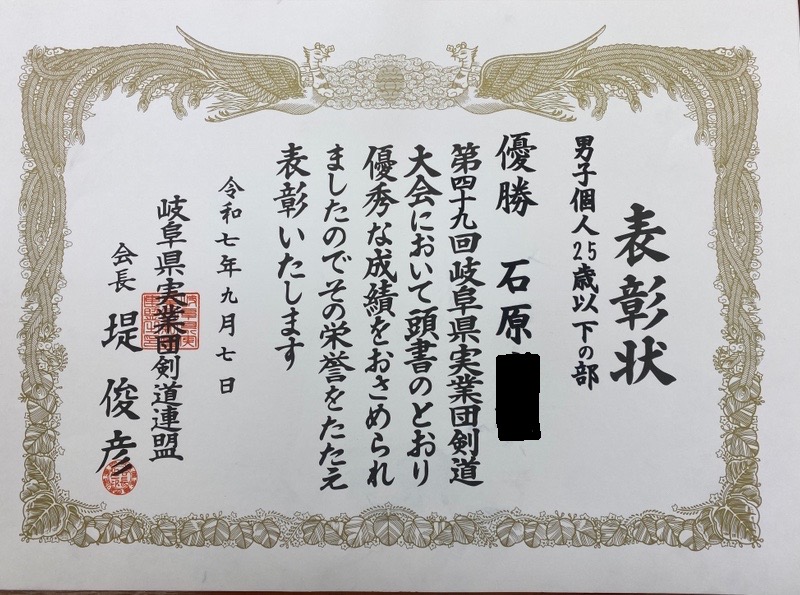 表彰状
男子個人25歳以下の部
優勝 石原
第四十九回岐阜県実業団剣道
大会において頭書のとおり
優秀な成績をおさめられ
ましたのでその栄誉をたたえ
表彰いたします
令和七年九月七日
岐阜県実業団剣道連盟
会長 堤俊彦